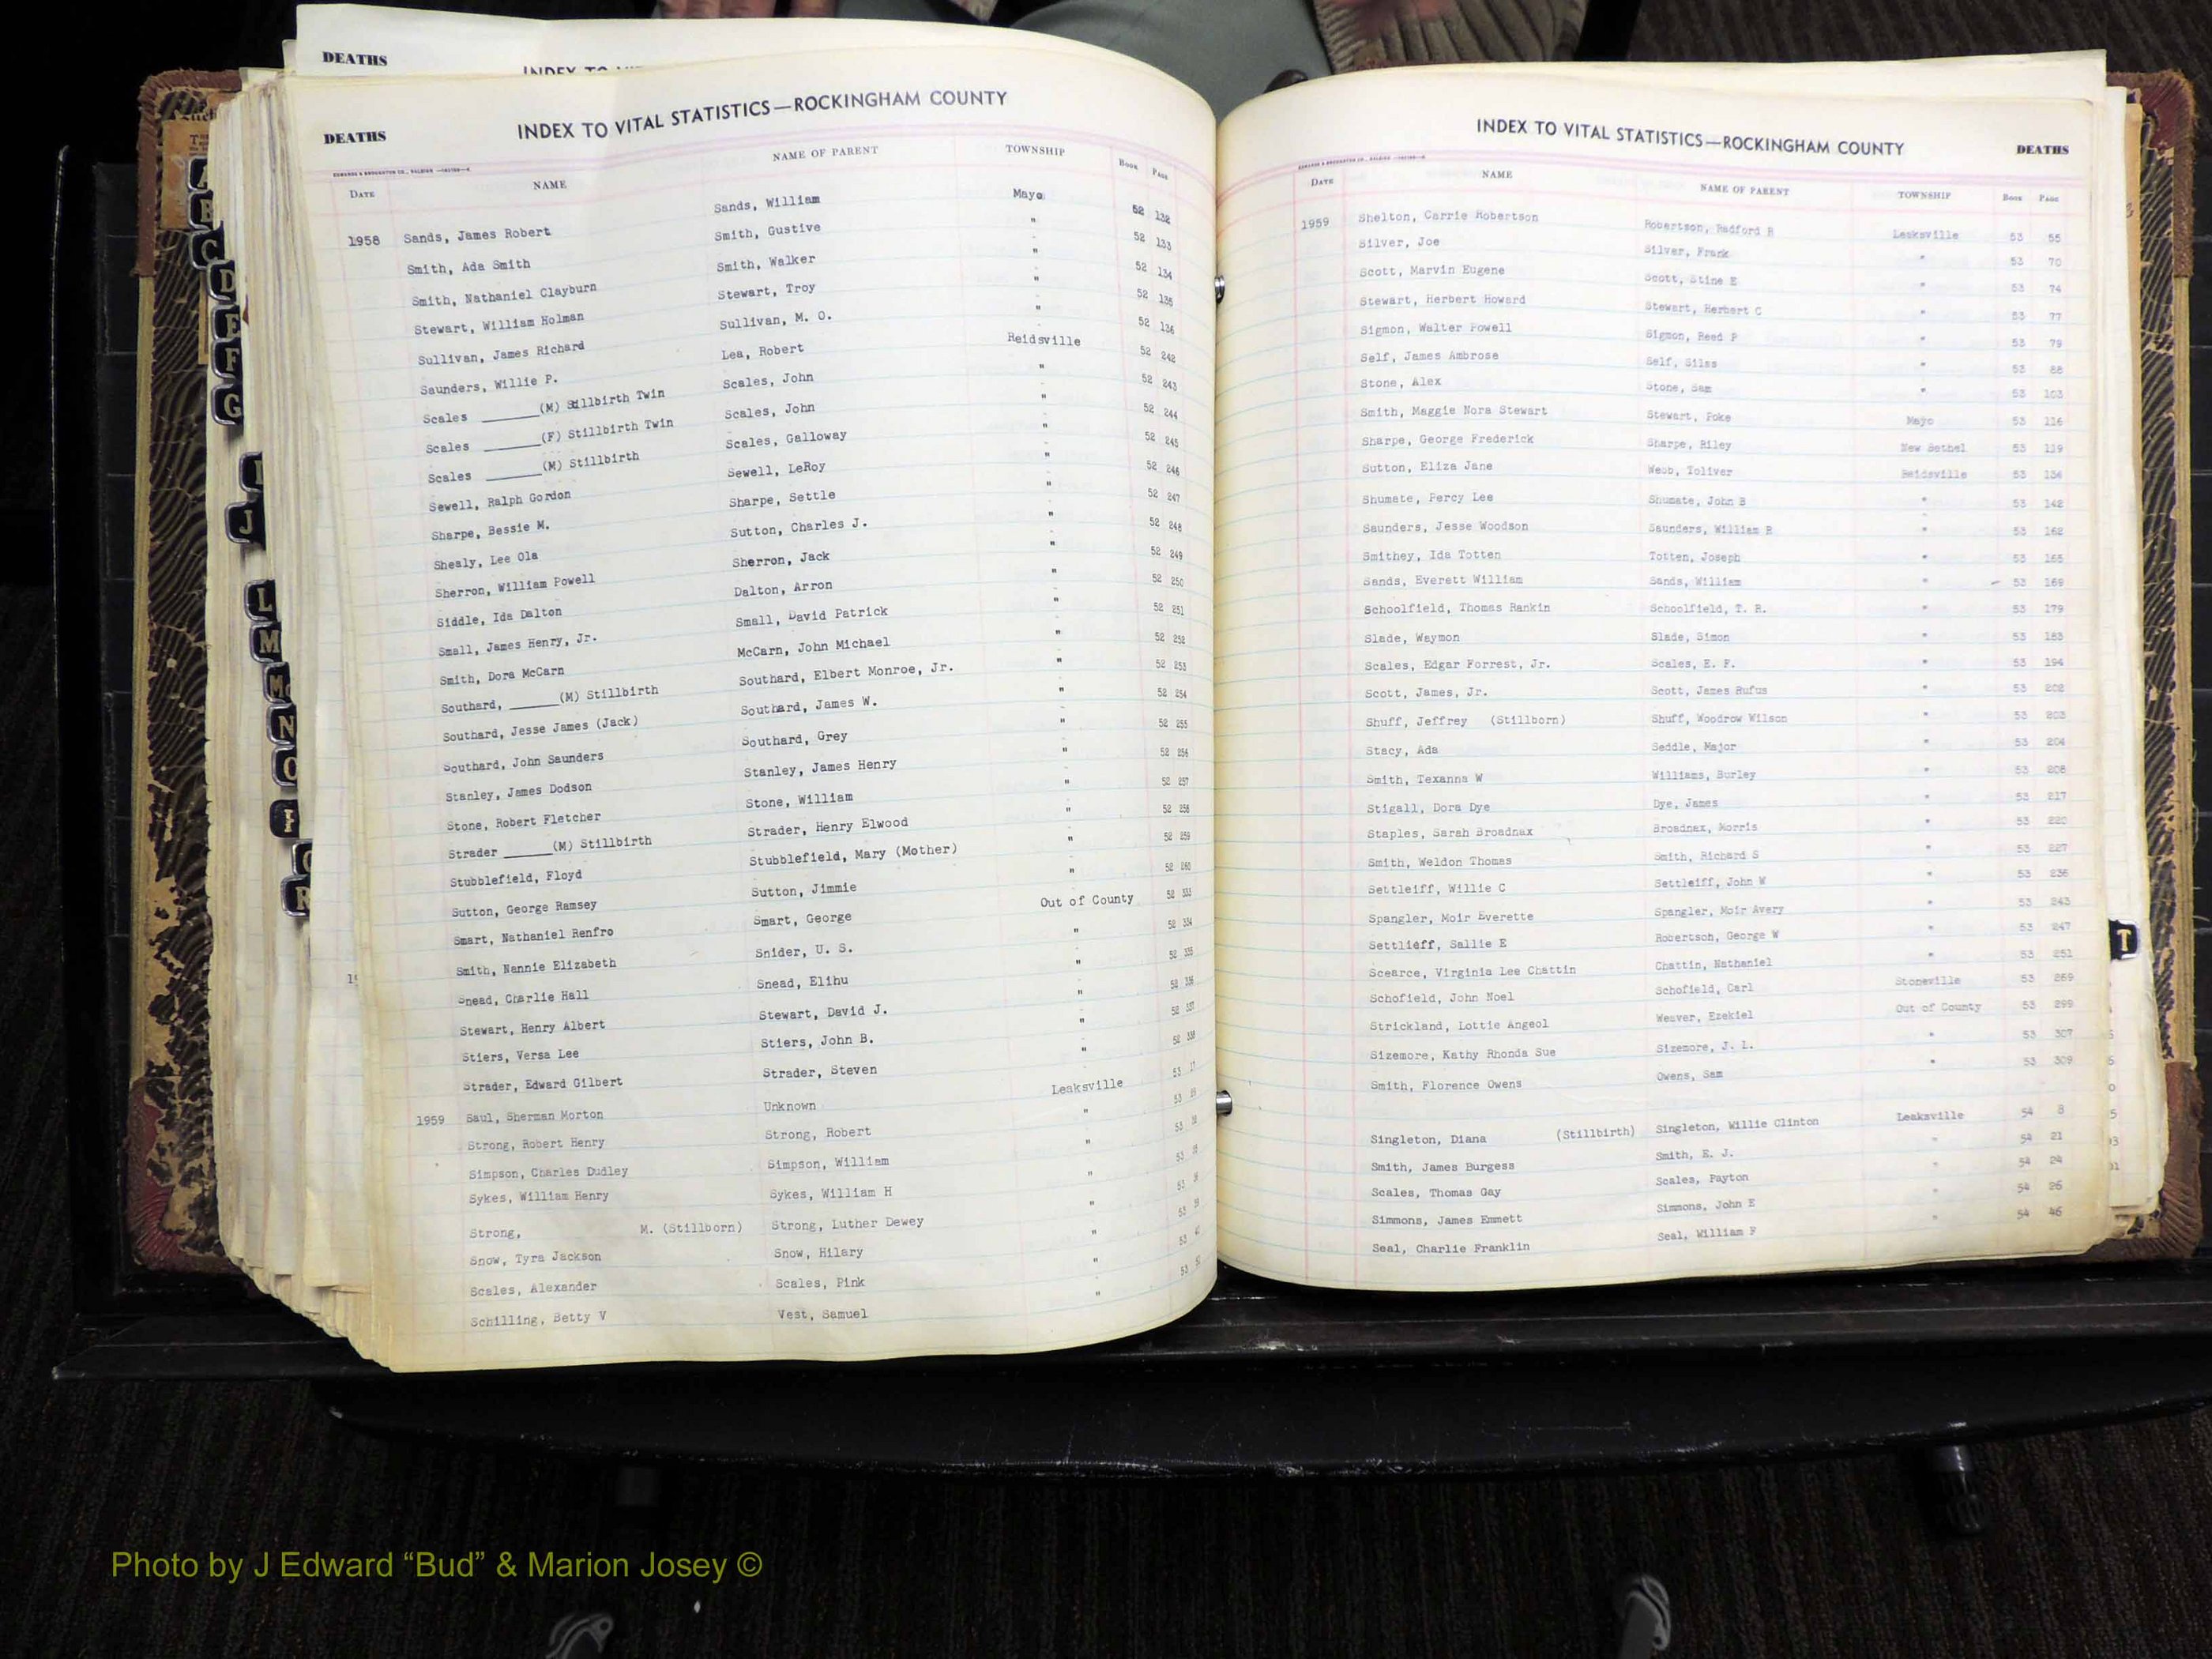 DEATHS
DEATHS
INDEX TO VITAL STATISTICS—ROCKINGHAM COUNTY
EDWARDS & BROUGHTON CO., RALEIGH
DATE NAME NAME OF PARENT TOWNSHIP BOOK PAGE
1958 Sands, James Robert Sands, William Mayo 52 132
Smith, Ada Smith Smith, Gustive " 52 133
Smith, Nathaniel Clayburn Smith, Walker " 52 134
Stewart, William Holman Stewart, Troy " 52 135
Sullivan, James Richard Sullivan, M. O. " 52 136
Saunders, Willie P. Lea, Robert Reidsville 52 242
Scales ______(M) Stillbirth Twin Scales, John " 52 243
Scales ______(F) Stillbirth Twin Scales, John " 52 244
Scales ______(M) Stillbirth Scales, Galloway " 52 245
Sewell, Ralph Gordon Sewell, LeRoy " 52 246
Sharpe, Bessie M. Sharpe, Settle " 52 247
Shealy, Lee Ola Sutton, Charles J. " 52 248
Sherron, William Powell Sherron, Jack " 52 249
Siddle, Ida Dalton Dalton, Arron " 52 250
Small, James Henry, Jr. Small, David Patrick " 52 251
Smith, Dora McCarn McCarn, John Michael " 52 252
Southard, _____(M) Stillbirth Southard, Elbert Monroe, Jr. " 52 253
Southard, Jesse James (Jack) Southard, James W. " 52 254
Southard, John Saunders Southard, Grey " 52 255
Stanley, James Dodson Stanley, James Henry " 52 256
Stone, Robert Fletcher Stone, William " 52 257
Strader _____(M) Stillbirth Strader, Henry Elwood " 52 258
Stubblefield, Floyd Stubblefield, Mary (Mother) " 52 259
Sutton, George Ramsey Sutton, Jimmie " 52 260
Smart, Nathaniel Renfro Smart, George Out of County 52 333
Smith, Nannie Elizabeth Snider, U. S. " 52 334
Snead, Charlie Hall Snead, Elihu " 52 335
Stewart, Henry Albert Stewart, David J. " 52 336
Stiers, Versa Lee Stiers, John B. " 52 337
Strader, Edward Gilbert Strader, Steven " 52 338
1959 Saul, Sherman Morton Unknown Leaksville 53 17
Strong, Robert Henry Strong, Robert " 53
Simpson, Charles Dudley Simpson, William " 53
Sykes, William Henry Sykes, William H " 53
Strong, M. (Stillborn) Strong, Luther Dewey " 53
Snow, Tyra Jackson Snow, Hilary " 53
Scales, Alexander Scales, Pink " 53
Schilling, Betty V Vest, Samuel " 53
INDEX TO VITAL STATISTICS—ROCKINGHAM COUNTY
DEATHS
DATE NAME NAME OF PARENT TOWNSHIP BOOK PAGE
1959 Shelton, Carrie Robertson Robertson, Radford R Leaksville 53 55
Silver, Joe Silver, Frank " 53 70
Scott, Marvin Eugene Scott, Stine E " 53 74
Stewart, Herbert Howard Stewart, Herbert C " 53 77
Sigmon, Walter Powell Sigmon, Reed P " 53 79
Self, James Ambrose Self, Silas " 53 88
Stone, Alex Stone, Sam " 53 103
Smith, Maggie Nora Stewart Stewart, Poke Mayo 53 116
Sharpe, George Frederick Sharpe, Riley New Bethel 53 119
Sutton, Eliza Jane Webb, Toliver Reidsville 53 134
Shumate, Percy Lee Shumate, John B " 53 142
Saunders, Jesse Woodson Saunders, William R " 53 162
Smithey, Ida Totten Totten, Joseph " 53 165
Sands, Everett William Sands, William " 53 169
Schoolfield, Thomas Rankin Schoolfield, T. R. " 53 179
Slade, Waymon Slade, Simon " 53 183
Scales, Edgar Forrest, Jr. Scales, E. F. " 53 194
Scott, James, Jr. Scott, James Rufus " 53 202
Shuff, Jeffrey (Stillborn) Shuff, Woodrow Wilson " 53 203
Stacy, Ada Seddle, Major " 53 204
Smith, Texanna W Williams, Burley " 53 208
Stigall, Dora Dye Dye, James " 53 217
Staples, Sarah Broadnax Broadnax, Morris " 53 220
Smith, Weldon Thomas Smith, Richard S " 53 227
Settleiff, Willie C Settleiff, John W " 53 236
Spangler, Moir Everette Spangler, Moir Avery " 53 243
Settlieff, Sallie E Robertson, George W " 53 247
Scearce, Virginia Lee Chattin Chattin, Nathaniel " 53 251
Schofield, John Noel Schofield, Carl Stoneville 53 269
Strickland, Lottie Angeol Weaver, Ezekiel Out of County 53 299
Sizemore, Kathy Rhonda Sue Sizemore, J. L. " 53 307
Smith, Florence Owens Owens, Sam " 53 309
Singleton, Diana (Stillbirth) Singleton, Willie Clinton Leaksville 54 8
Smith, James Burgess Smith, E. J. " 54 21
Scales, Thomas Gay Scales, Payton " 54 24
Simmons, James Emmett Simmons, John E " 54 26
Seal, Charlie Franklin Seal, William F " 54 46
A
B
C
D
E
F
G
I
J
L
M
Mc
N
O
R
T
Photo by J Edward “Bud” & Marion Josey ©